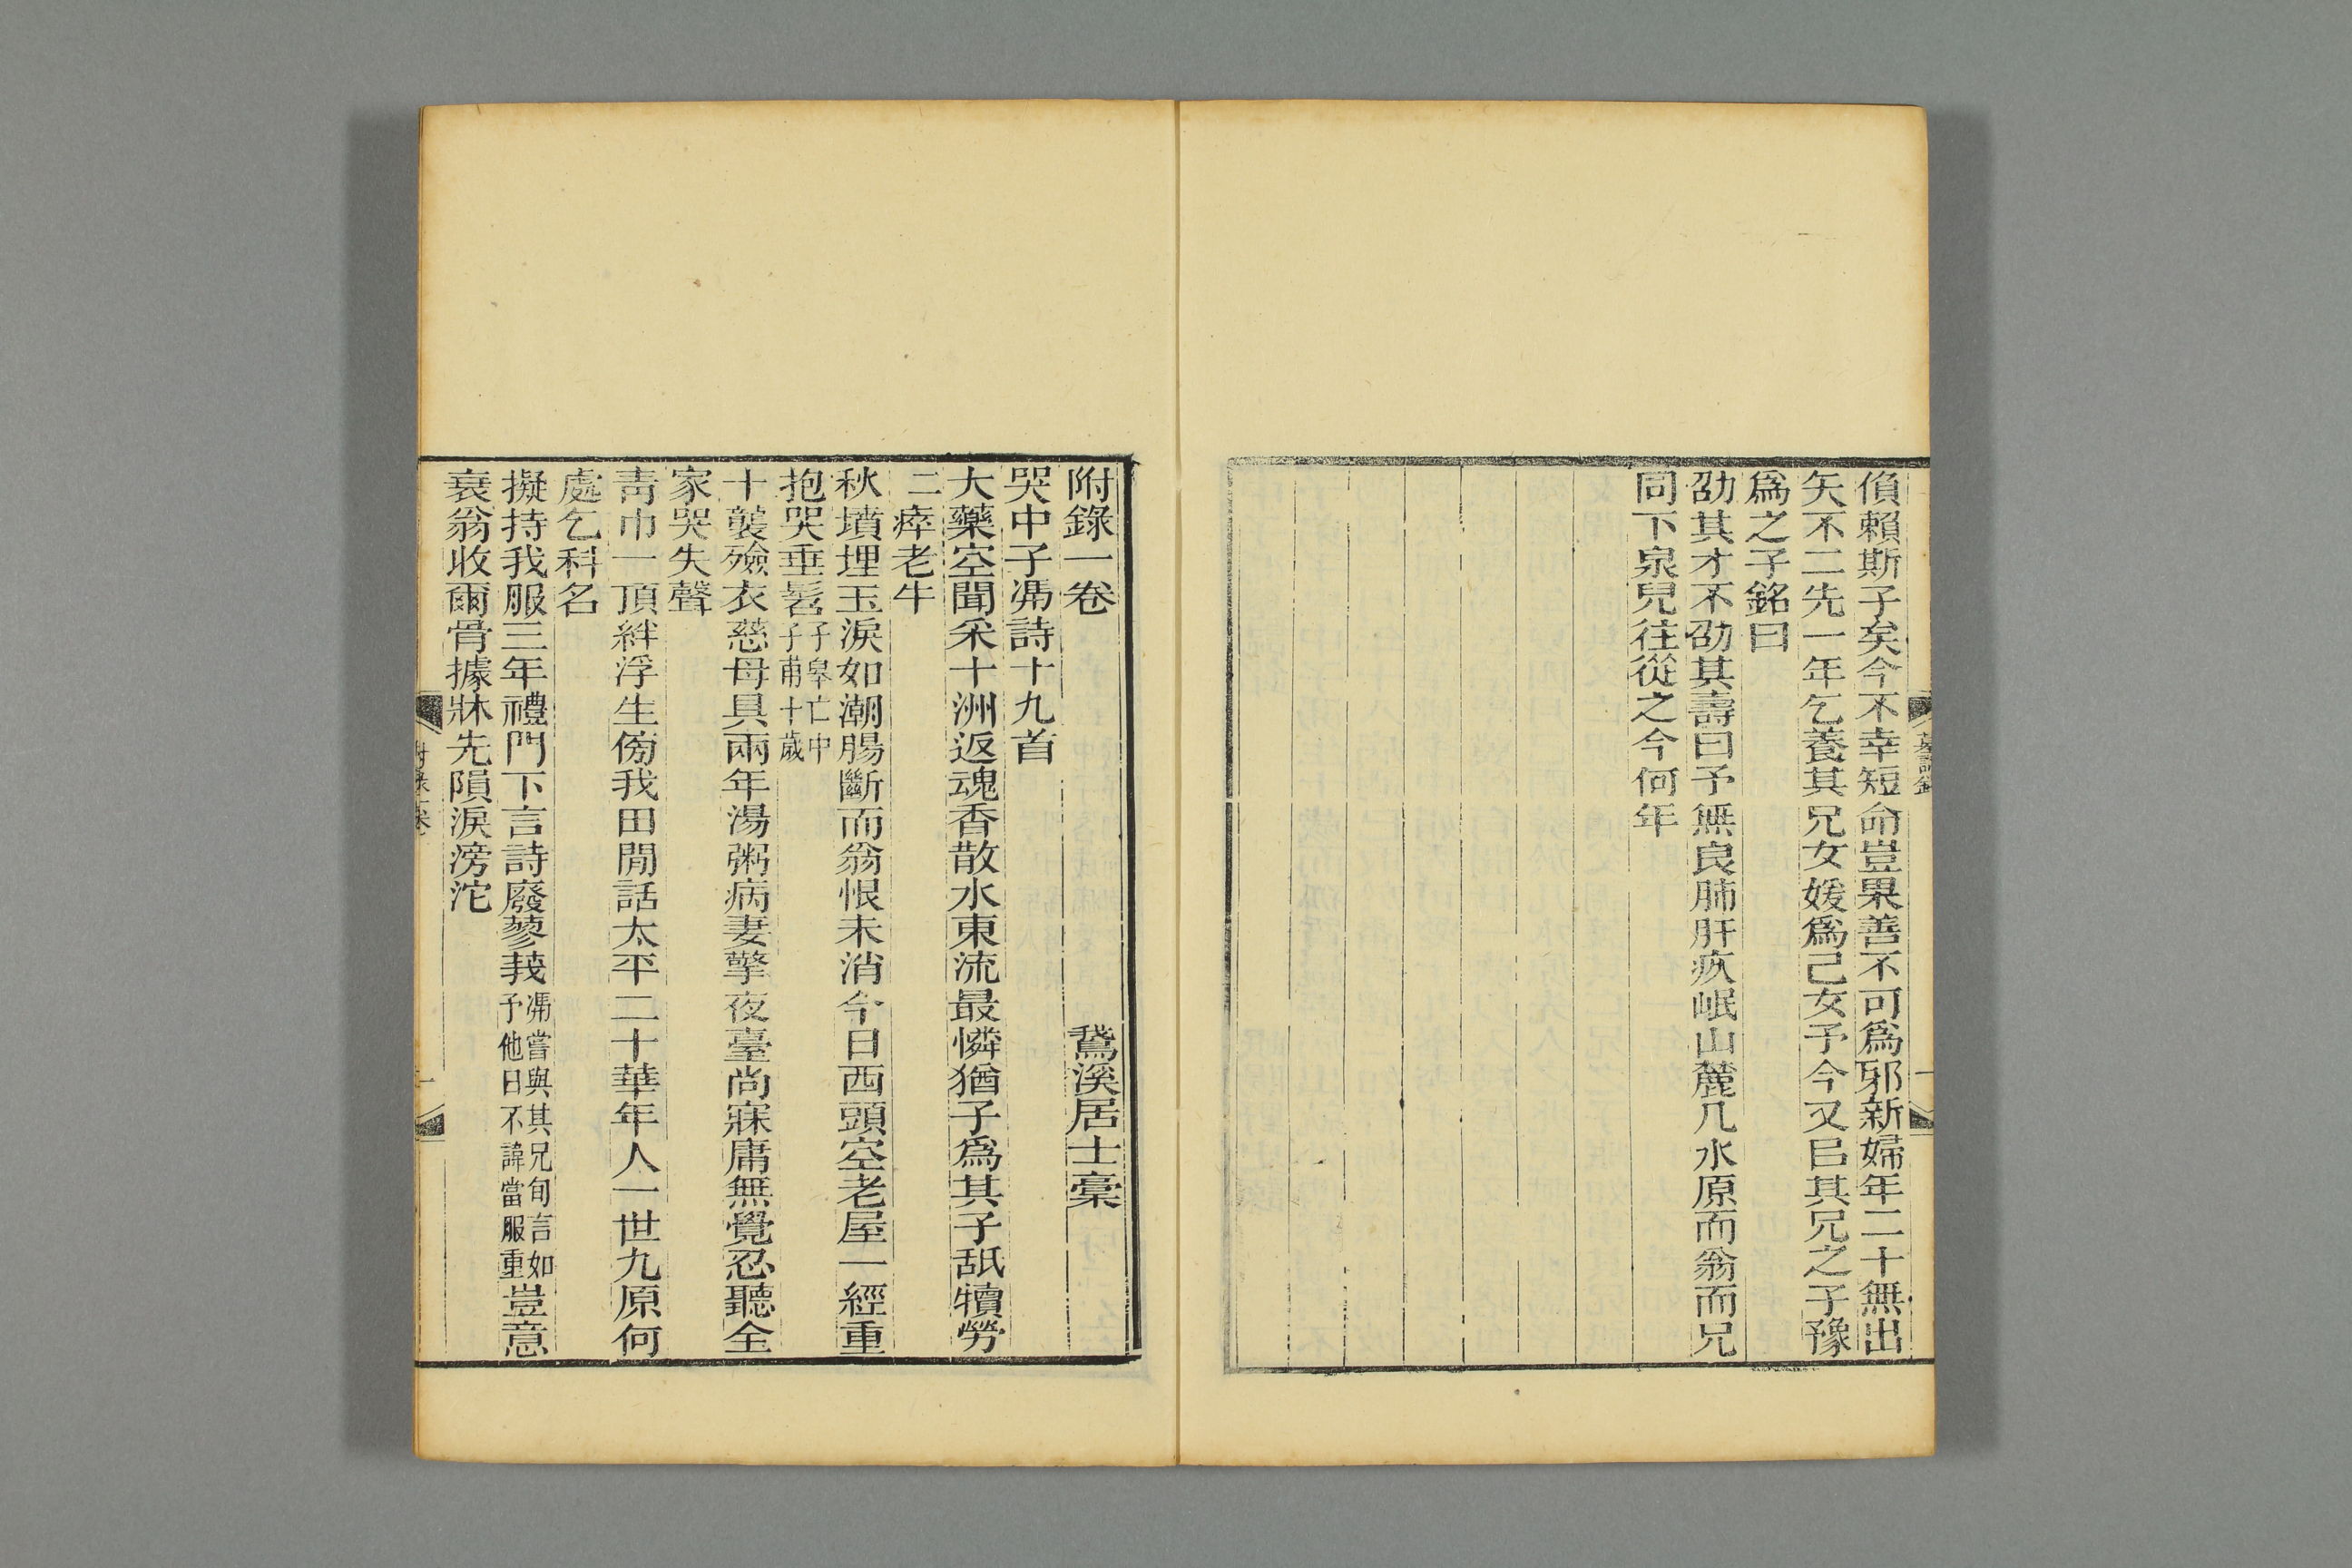 偩賴斯子矣今不幸短命豈果善不可爲邪新婦年二十無出
矢不二先一年乞養其兄女媛爲己女予今又㠯其兄之子豫
爲之子銘曰
劭其才不劭其壽曰予無良肺肝疚岷山麓几水原而翁而兄
同下泉兒往從之今何年
附錄一卷
鵞溪居士稾
哭中子馮詩十九首
大藥空聞采十洲返魂香散水東流最憐猶子爲其子舐犢勞
二瘁老牛
秋墳埋玉淚如潮腸斷而翁恨未消今日西頭空老屋一經重
抱哭垂髫子皋亡中
子甫十歲
十襲殮衣慈母具兩年湯粥病妻擎夜臺尚寐庸無覺忍聽全
家哭失聲
青巾一頂絆浮生傍我田閒話太平二十華年人一世九原何
處乞科名
擬持我服三年禮門下言詩廢蓼莪馮嘗與其兄旬言如
予他日不諱當服重豈意
衰翁收爾骨據牀先隕淚滂沱